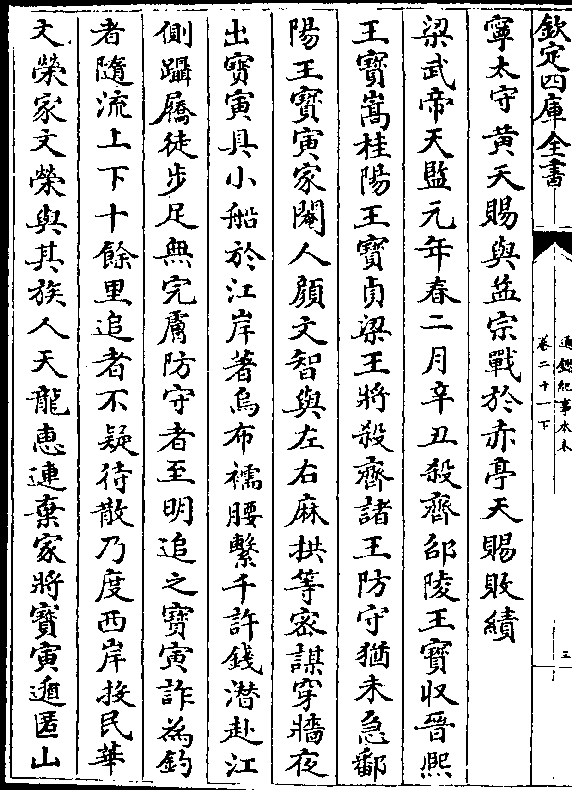 欽定四庫全書
通鑑紀事本末
卷二十一下
三
寧太守黃天賜與益宗戰於赤亭天賜敗績
梁武帝天監元年春二月辛丑殺齊邵陵王寶攸晉熙
王寶嵩桂陽王寶貞梁王將殺齊諸王防守猶未急鄱
陽王寶寅家閽人顔文智與左右麻拱等宻謀穿牆夜
出寶寅具小船於江岸著烏布襦腰繫千許錢潛赴江
側躡屩徒步足無完膚防守者至明追之寶寅詐為釣
者隨流上下十餘里追者不疑待散乃度西岸投民華
文榮家文榮與其族人天龍惠連棄家將寶寅遁匿山